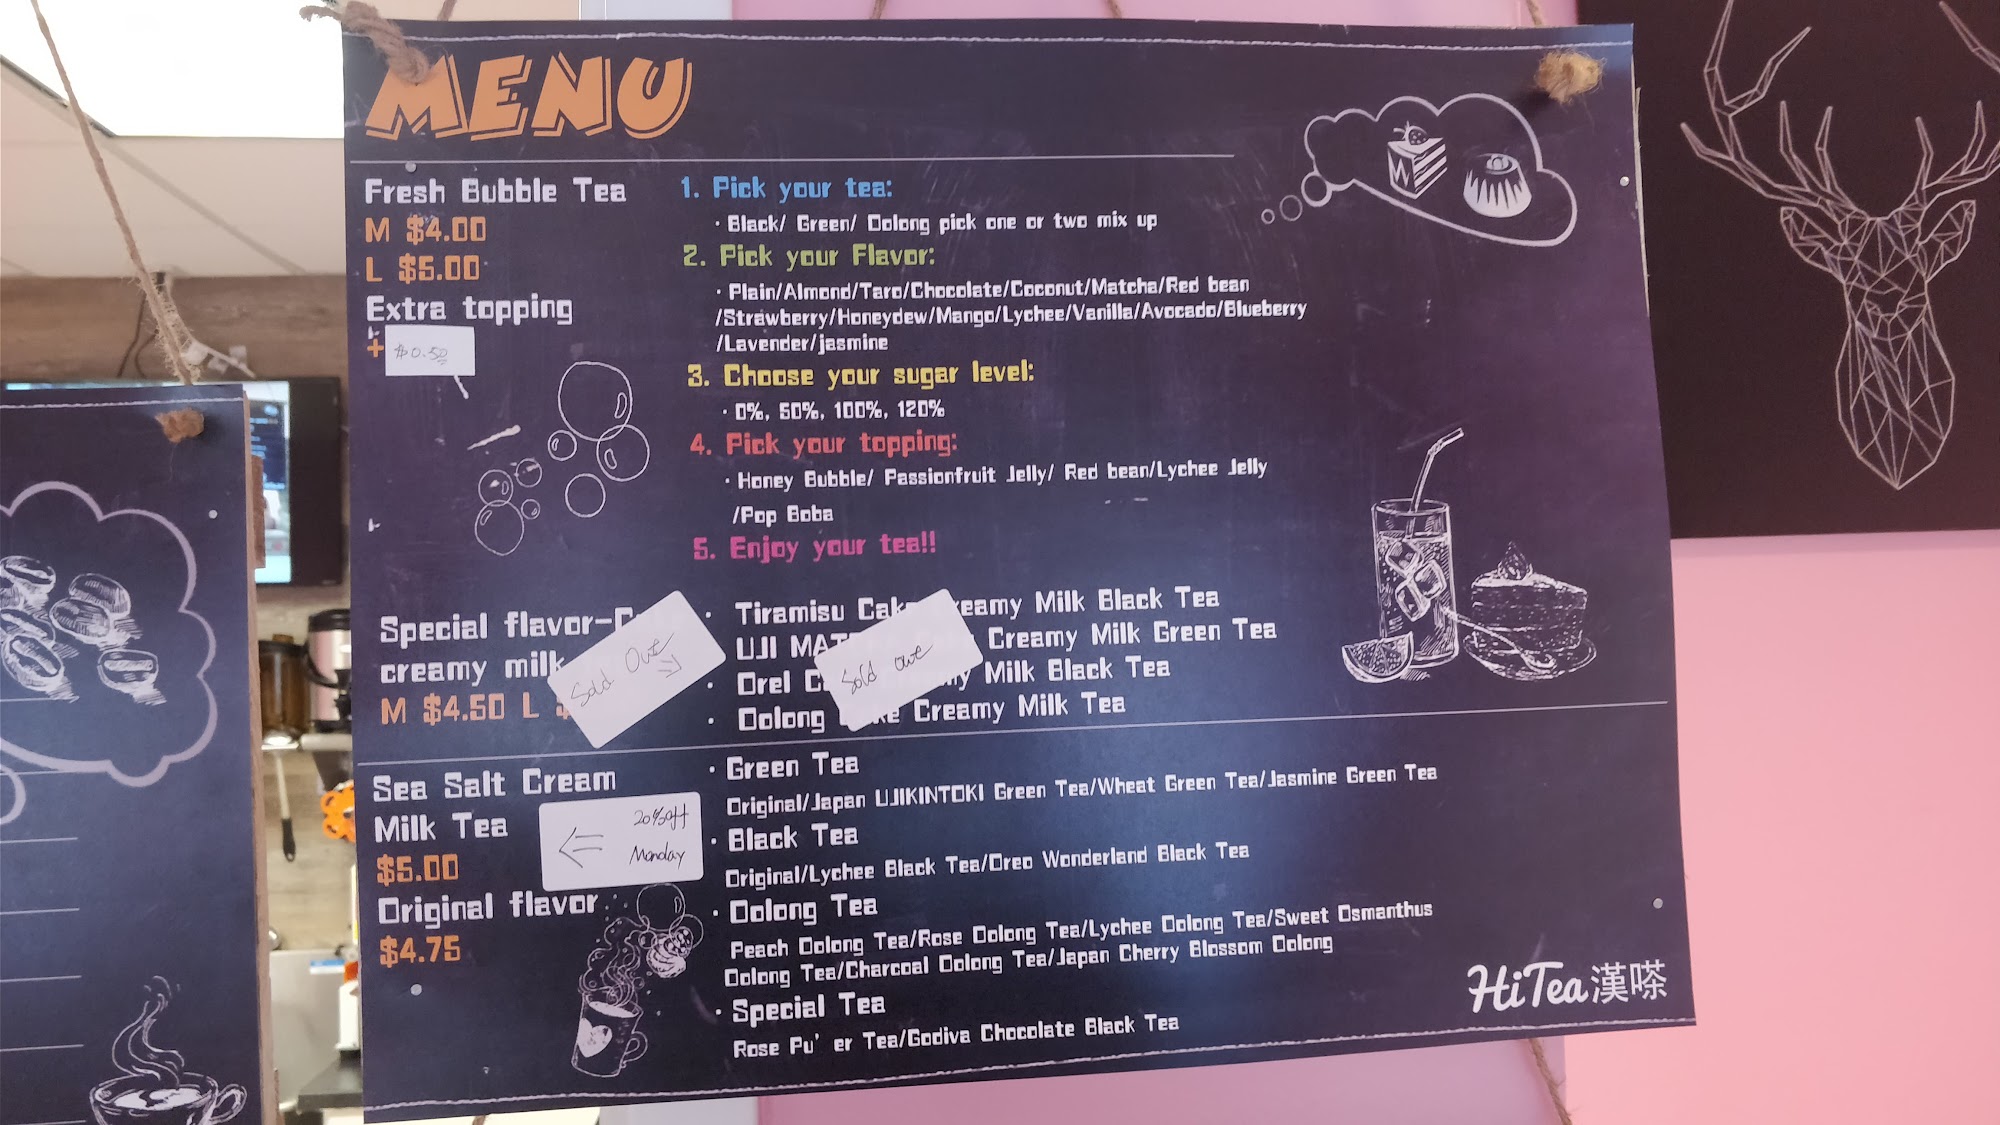 MENU
Fresh Bubble Tea
M $4.00
L $5.00
Extra topping
+ $0.50
1. Pick your tea:
· Black/ Green/ Oolong pick one or two mix up
2. Pick your Flavor:
· Plain/Almond/Taro/Chocolate/Coconut/Matcha/Red bean
/Strawberry/Honeydew/Mango/Lychee/Vanilla/Avocado/Blueberry
/Lavender/jasmine
3. Choose your sugar level:
· 0%, 50%, 100%, 120%
4. Pick your topping:
· Honey Bubble/ Passionfruit Jelly/ Red bean/Lychee Jelly
/Pop Boba
5. Enjoy your tea!!
Special flavor-
creamy milk
M $4.50 L
Sold Out
· Tiramisu Cake Creamy Milk Black Tea
UJI Creamy Milk Green Tea
· Orel Milk Black Tea
· Oolong Cake Creamy Milk Tea
Sold out
Sea Salt Cream
Milk Tea
$5.00
Original flavor
$4.75
20% off
Monday
· Green Tea
Original/Japan UJIKINTOKI Green Tea/Wheat Green Tea/Jasmine Green Tea
· Black Tea
Original/Lychee Black Tea/Oreo Wonderland Black Tea
· Oolong Tea
Peach Oolong Tea/Rose Oolong Tea/Lychee Oolong Tea/Sweet Osmanthus
Oolong Tea/Charcoal Oolong Tea/Japan Cherry Blossom Oolong
· Special Tea
Rose Pu' er Tea/Godiva Chocolate Black Tea
HiTea 漢嗏